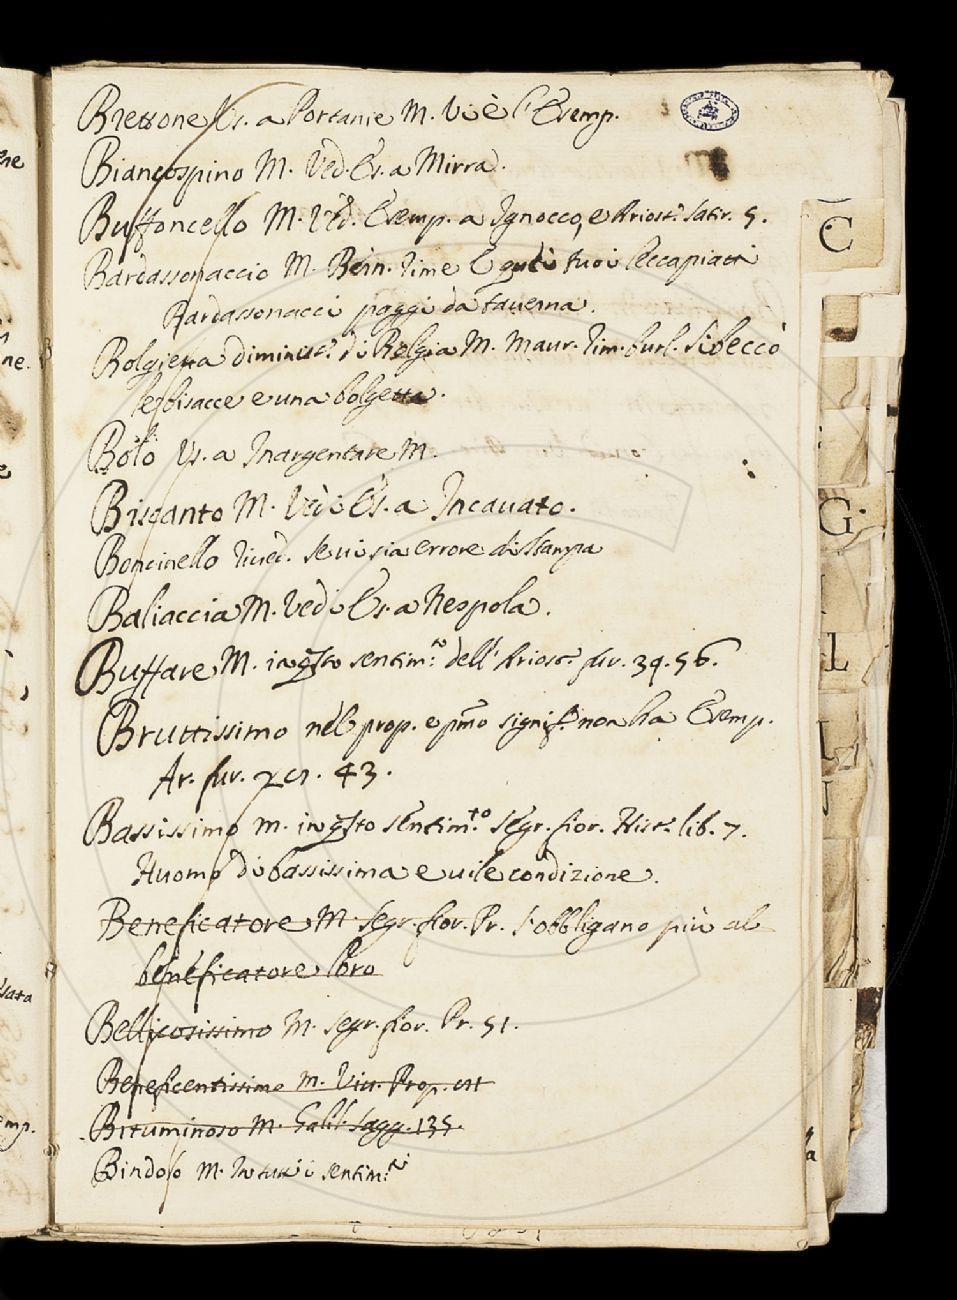 Brettone Es. a Portante M. Vi è l'Esemp.
Biancospino M. Ved. Es. a Mirra.
Buffoncello M. Ved. Esemp. a Ignocco, e Ariost. Satir. 5.
Bardassonaccio M. Bern. rime E tuoi leccapiatti
Bardassonacci paggi da taverna.
Bolgietta diminut. di Bolgia M. Maur. rim. burl. Si beccò
le bisacce e una bolgetta.
Bolo Es. a Inargentare M.
Biscanto M. Vedi Es. a Incavato.
Boncinello rived. se vi sia errore di stampa
Baliaccia M. Vedi Es. a Nespola.
Buffare M. in qsto sentim.to dell'Ariost. fur. 39. 56.
Bruttissimo nel prop. e pmo signif. non ha Esemp.
Ar. fur. 43.
Bassissimo M. in qsto sentim.to Segr. fior. Hist. lib. 7.
Huomo di bassissima e vile condizione.
Beneficatore M. Segr. fior. Pr. s'obbligano più al
beneficatore loro
Bellicosissimo M. Segr. fior. Pr. 51.
Beneficentissimo M. Prop.
Bituminoso M. Gal. Sagg. 135.
Bindolo M. In tutti i sentim.ti
C
G
L